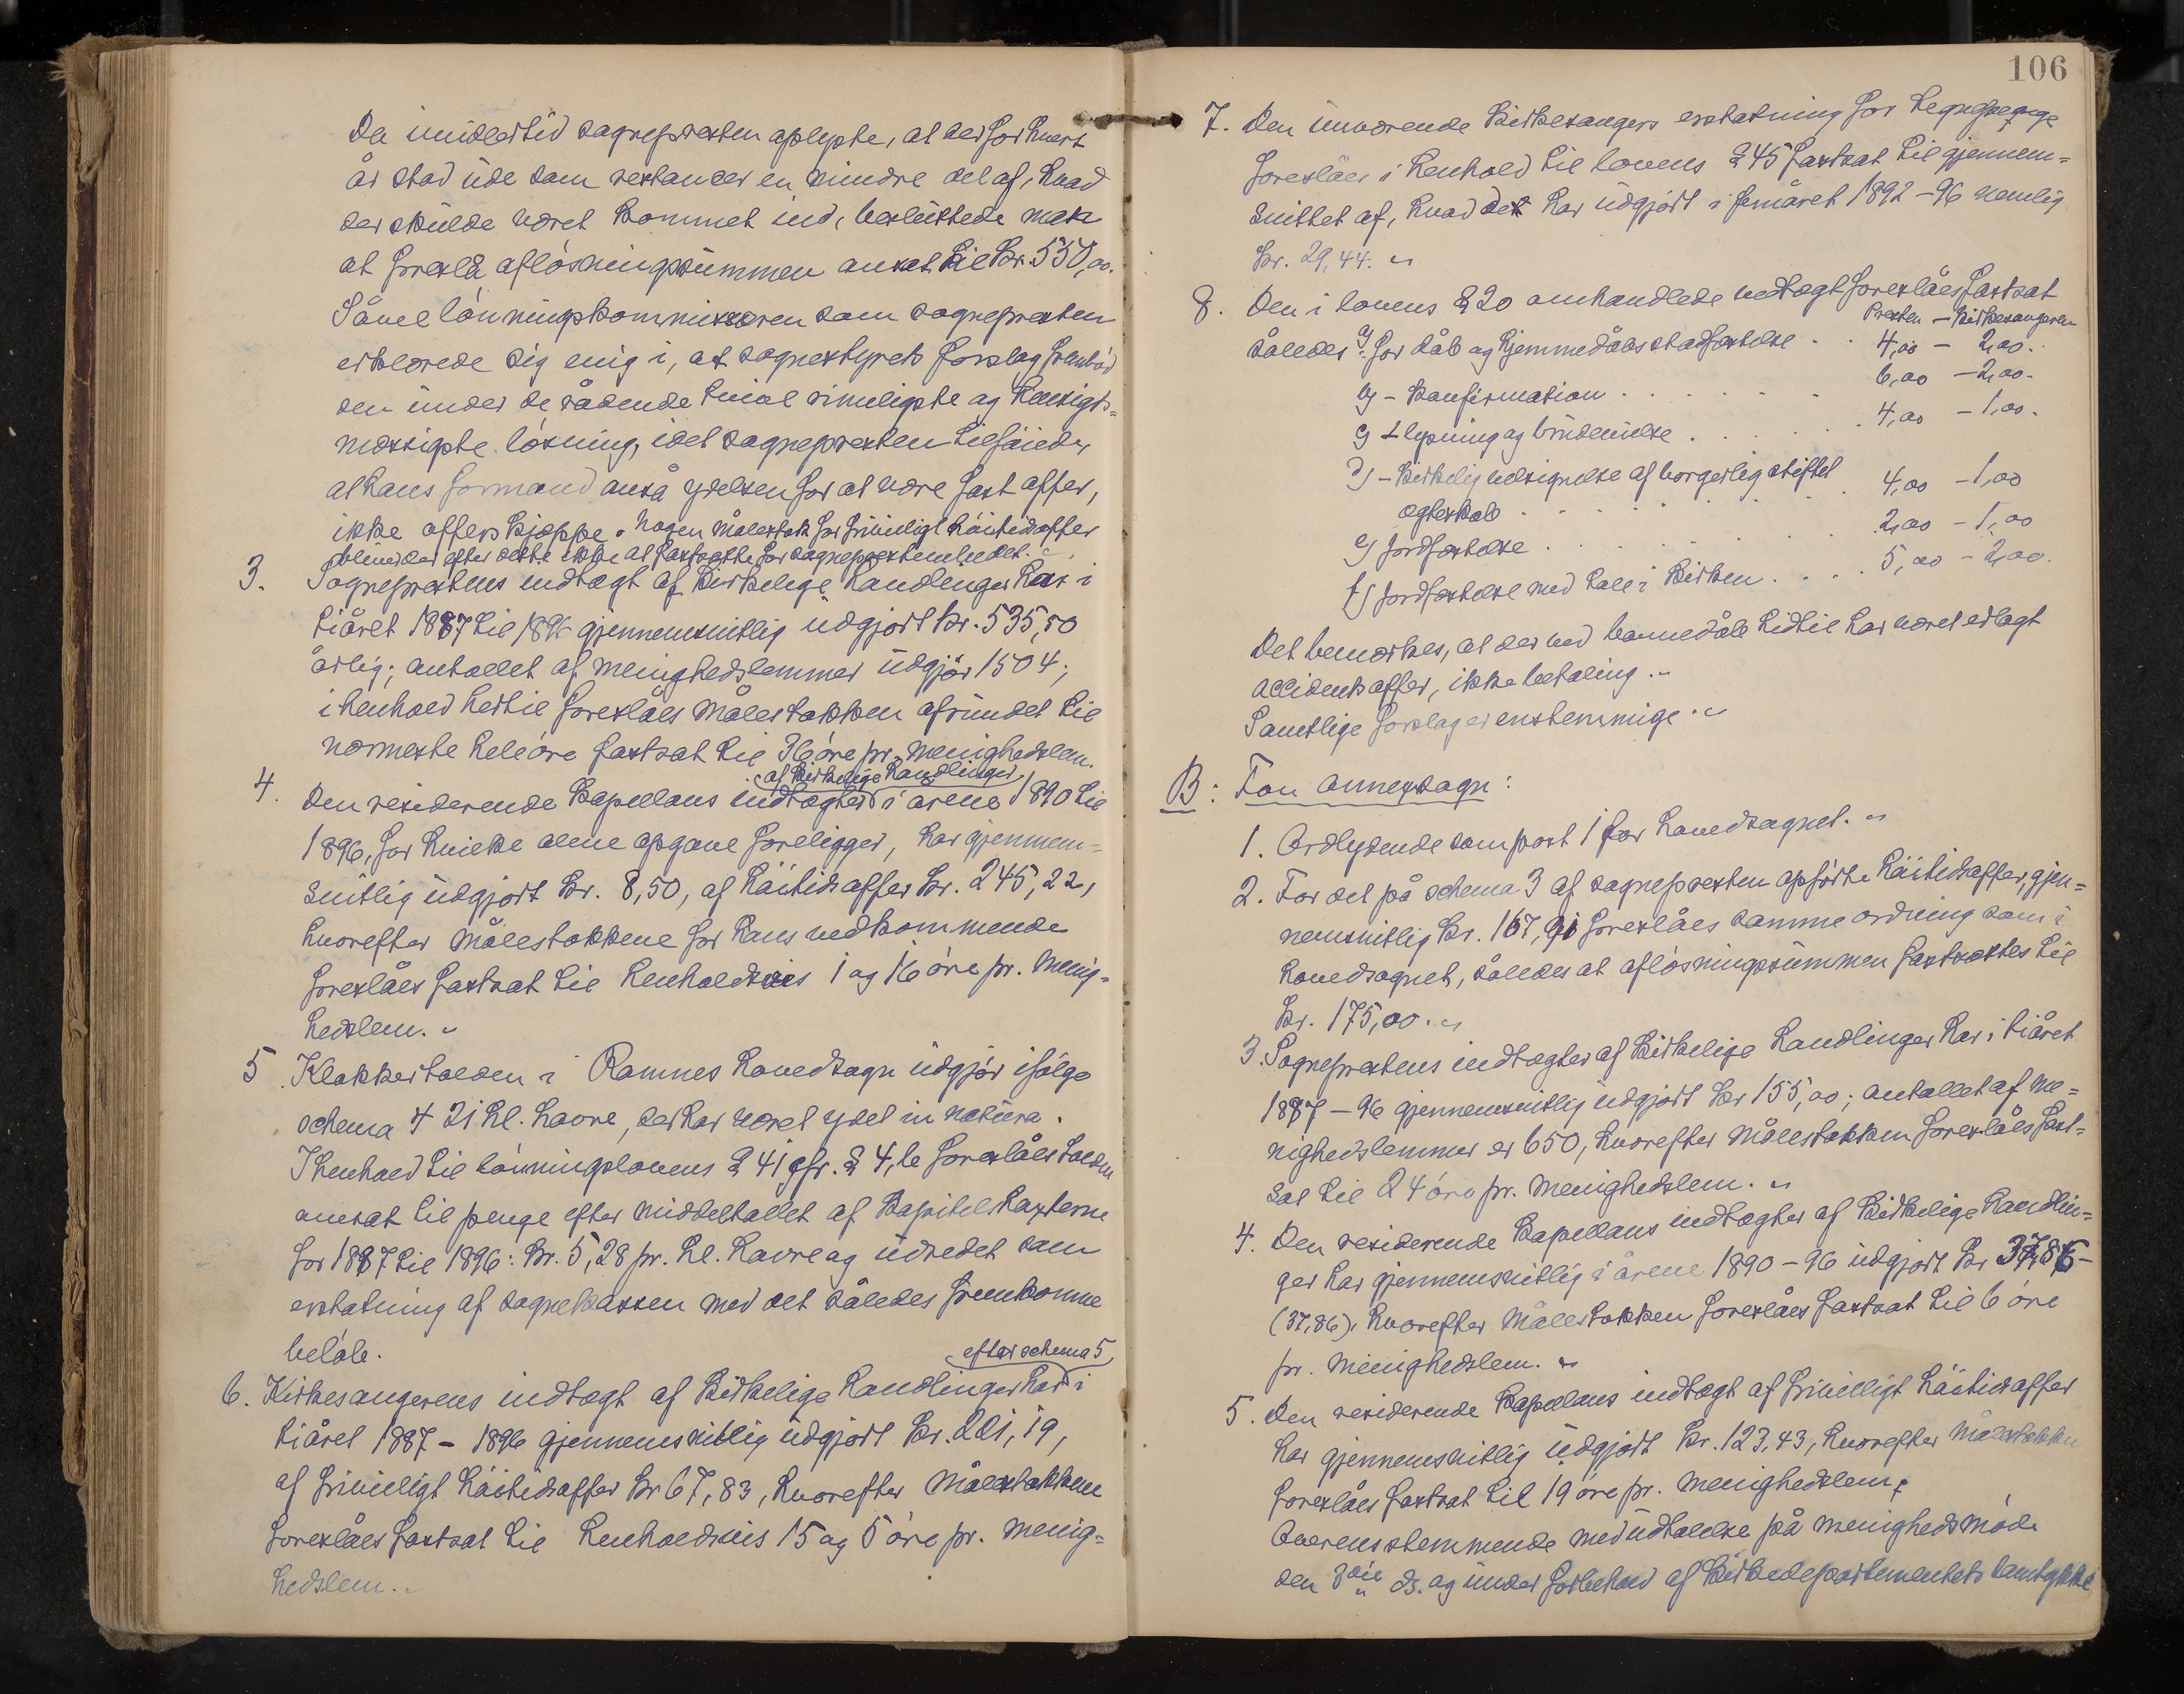 Da imidlertid sognepresten oplyste, at der for hvert
år stod ude som restancer en mindre del af, hvad
der skulde været kommet ind, besluttede man
at foreslå aflösningssummen ansat til Kr. 550,00.
Såvel lönningskommissæren som sognepresten
erklærede sig enig i, at sognestyrets forslag frembød
den under de rådende tvivl rimeligste og hensigts=
mæssigste lösning, idet sognepresten tilföiede,
at hans formand anså ydelsen for at være fast offer,
ikke offerskjæppe. Nogen målestok for frivilligt höitidsoffer
bliver der efter dette ikke at fastsætte for sogneprestembedet.
3. Sogneprestens indtægt af kirkelige handlinger har i
tiåret 1887 til 1896 gjennemsnitlig udgjort kr. 535,50
årlig; antallet af menighedslemmer udgjör 1504;
i henhold hertil foreslåes målestokken afrundet til
nærmeste hele öre fastsat til 36 öre pr. menighedslem.
af kirkelige handlinger
4. Den residerende kapellans indtægter i årene 1890 til
1896, for hvilke alene opgave foreligger, har gjennem=
snitlig udgjort Kr. 8,50, af höitidsoffer Kr. 245,22,
hvorefter målestokkene for hans vedkommende
foreslåes fastsat til henholdsvis 1 og 16 öre pr. menig=
hedslem.
5. Klokkertolden i Ramnes hovedsogn udgjör ifölge
schema 4 21 hl. havre, der har været ydet in natura.
I henhold til lönningslovens § 41 jfr. § 4, b foreslåes tolden
ansat til penge efter middeltallet af kapitelstaxterne
for 1887 til 1896: Kr. 5,28 pr. hl. havre og udredet som
erstatning af sognekassen med det således fremkomne
belöb.
efter schema 5
6. Kirkesangerens indtægt af kirkelige handlinger har i
tiåret 1887 - 1896 gjennemsnitlig udgjort Kr. 221,19,
af frivilligt höitidsoffer Kr 67,83, hvorefter målestokken
foreslåes fastsat til henholdsvis 15 og 5 öre pr. menig=
hedslem.
106
7. Den nuværende kirkesangers erstatning for
foreslåes i henhold til lovens § 45 fastsat til gjennem=
snittet af, hvad det har udgjört i femåret 1892-96 nemlig
Kr. 29,44.
8. Den i lovens § 20 omhandlede vedtægt foreslåes fastsat
Presten - Kirkesangeren
således: a) for dåb og hjemmedåbs stadfæstelse . . 4,00 - 2,00.
b) - Konfirmation . . . . . . 6,00 - 2,00.
c) - lysning og brudevielse . . . . . . 4,00 - 1,00.
d) - Kirkelig velsignelse af borgerlig stiftet
ægteskab . . . . . . . 4,00 - 1,00
e) jordfæstelse . . . . . . . 2,00 - 1,00
f) jordfæstelse med tale i kirken . . . . 5,00 - 2,00.
Det bemærkes, at der ved barnedåb hidtil har været erlagt
accidentsoffer, ikke betaling.
Samtlige forslag er enstemmige.
B: For annexsogn:
1. Ordlydende som post 1 for hovedsognet.
2. For det på schema 3 af sognepresten opførte höitidsoffer, gjen=
nemsnitlig Kr. 167,91 foreslåes samme ordning som i
hovedsognet, således at aflösningssummen fastsættes til
Kr. 175,00.
3. Sogneprestens indtægter af kirkelige handlinger har i tiåret
1887-96 gjennemsnitlig udgjort Kr 155,00; antallet af me=
nighedslemmer er 650, hvorefter målestokken foreslåes fast=
sat til 24 öre pr. menighedslem.
4. Den residerende kapellans indtægter af kirkelige handlin=
ger har gjennemsnitlig i årene 1890-96 udgjort Kr 37,86-
(37,86), hvorefter målestokken foreslåes fastsat til 6 öre
pr. menighedslem.
5. Den residerende kapellans indtægt af frivilligt höitidsoffer
har gjennemsnitlig udgjort Kr. 123,43, hvorefter målestokken
foreslåes fastsat til 19 öre pr. menighedslem.
Overensstemmende med udtalelse på menighedsmöde
den 3die ds. og under forbehold af Kirkedepartementets samtykke